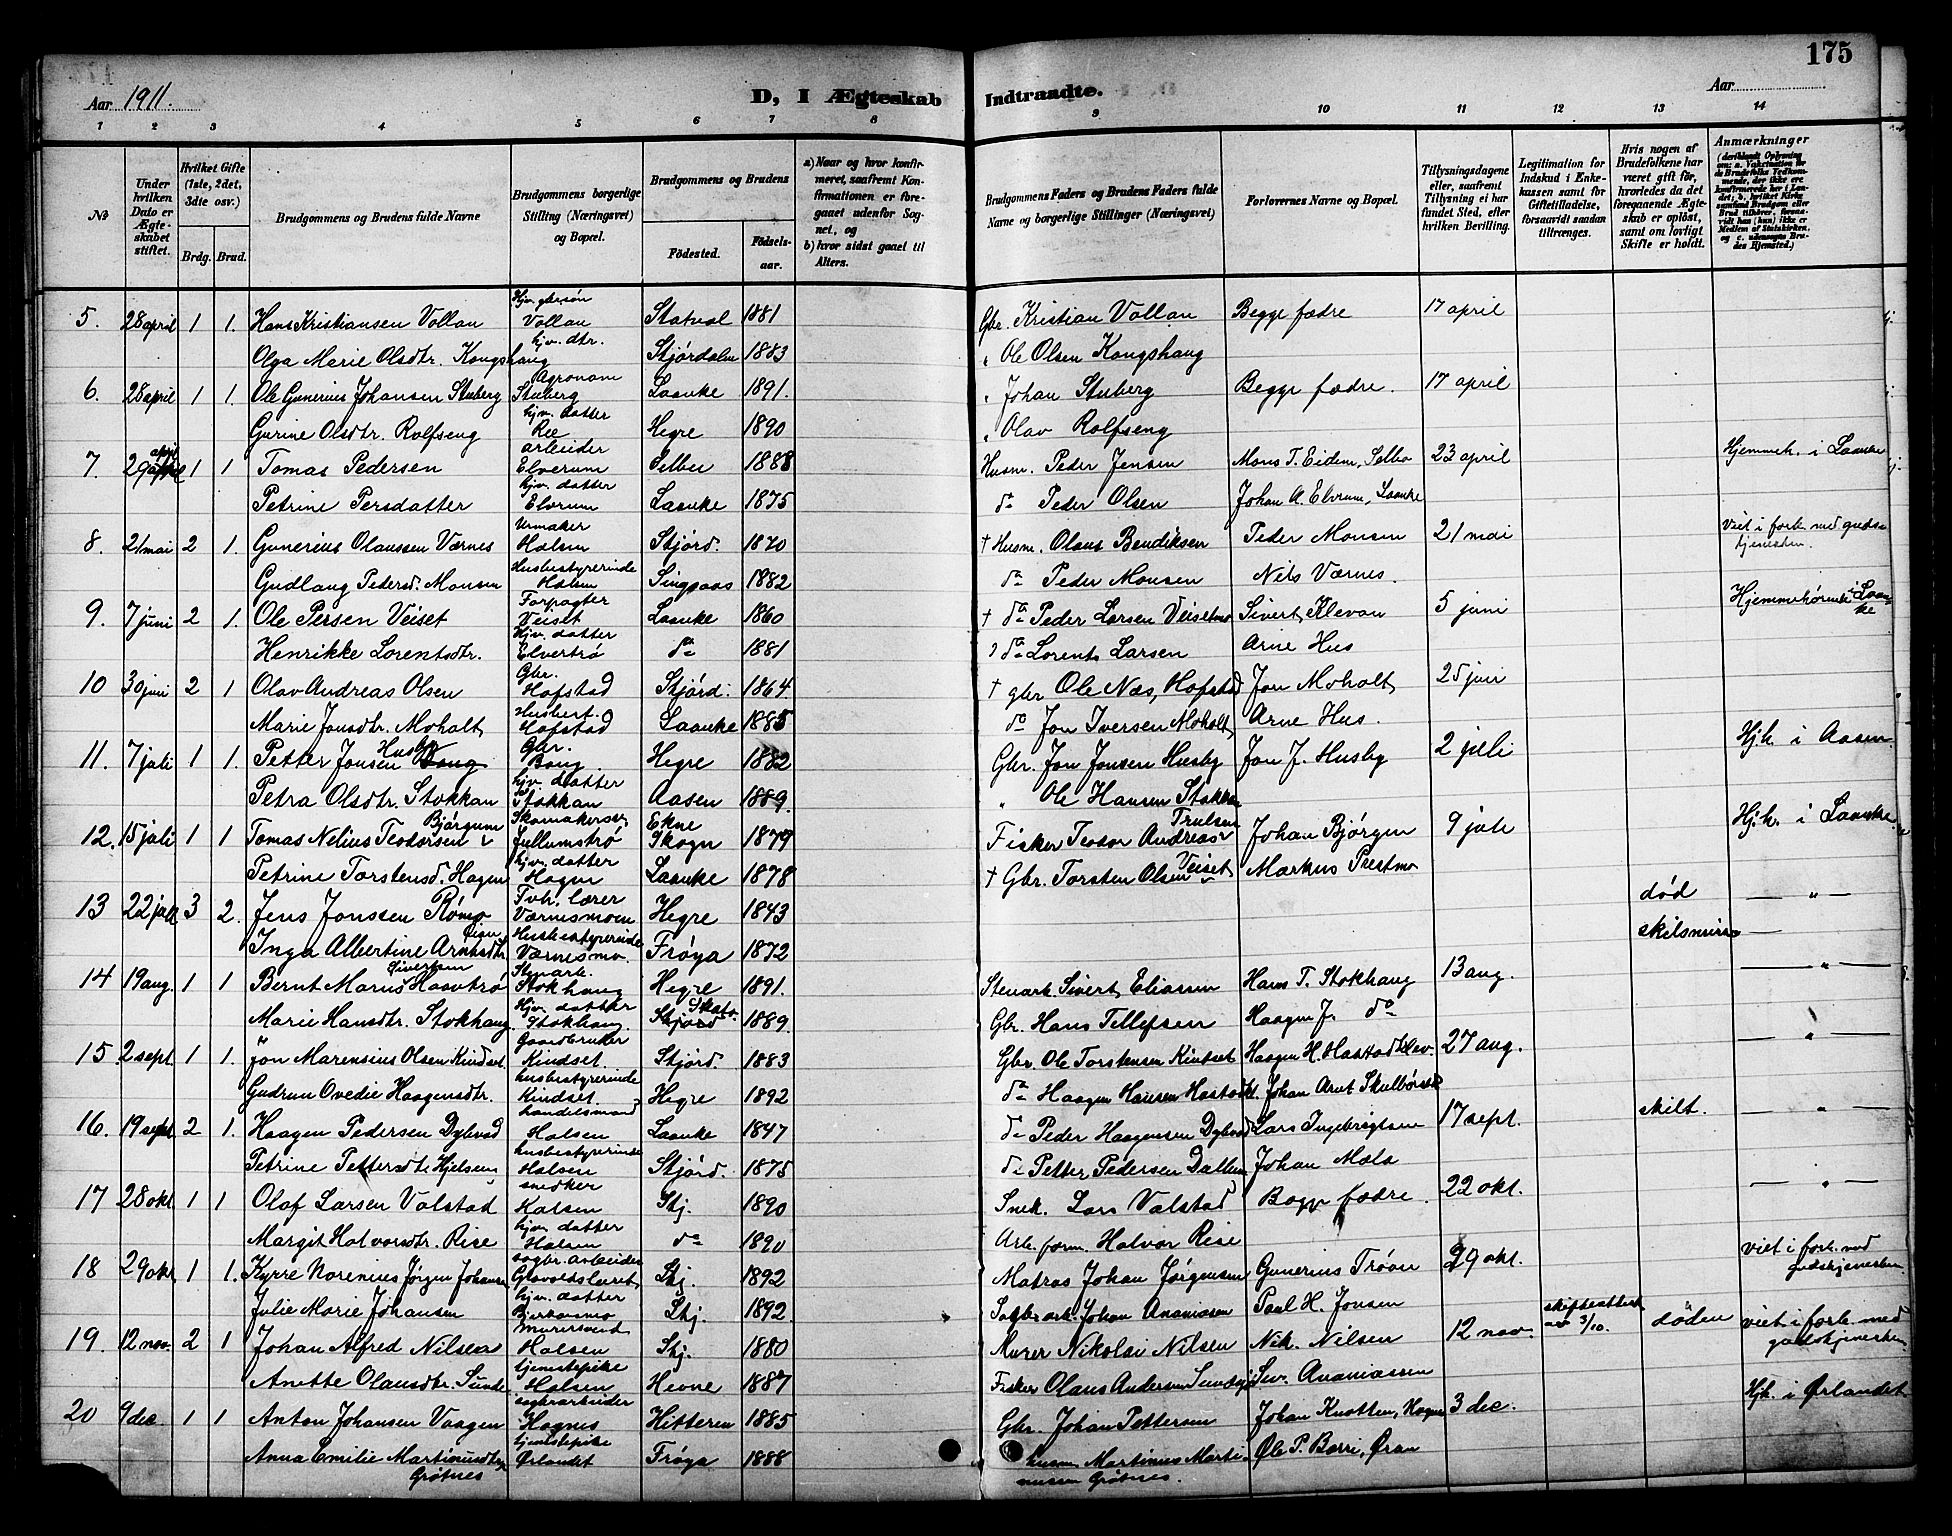 175
Aar 1911.
D, I Ægteskab Indtraadte.
Aar
1 2 3 4 5 6 7 8 9 10 11 12 13 14
№
Under hvilken Dato er Ægteskabet stiftet.
Hvilket Gifte (1ste, 2det, 3die osv.)
Brdg. Brud.
Brudgommens og Brudens fulde Navne
Brudgommens borgerlige Stilling (Næringsvei) og Bopæl.
Brudgommens og Brudens
Födested. Födselsaar.
a) Naar og hvor konfirmeret, saafremt Konfirmationen er foregaaet udenfor Sognet, og
b) hvor sidst gaaet til Alters.
Brudgommens Faders og Brudens Faders fulde Navne og borgerlige Stillinger (Næringsvei)
Forlovernes Navne og Bopæl.
Tillysningsdagene eller, saafremt Tillysning ei har fundet Sted, efter hvilken Bevilling.
Legitimation for Indskud i Enkekassen samt for Giftetilladelse, forsaavidt saadan tiltrænges.
Hvis nogen af Brudefolkene har været gift för, hvorledes da det foregaaende Ægteskab er oplöst, samt om lovligt Skifte er holdt.
Anmærkninger
5. 28 april 1 1. Hans Kristiansen Vollan Hjv. gbr.søn Vollan Statval 1881 Gbr. Kristian Vollan Begge fædre 17 april
Olga Marie Olsdtr. Kongshaug hjv. dtr. Stjördalen 1883 " Ole Olsen Kongshaug
6. 28 april 1 1. Ole Gunerius Johansen Stuberg Agronom Stuberg Laanke 1891. " Johan Stuberg Begge fædre. 17 april
Gurine Olsdtr. Rolfseng hjv. datter Ree Hegre 1890 " Olav Rolfseng
7 29 april 1 1 Tomas Pedersen arbeider Elverum Selbu 1888 Husm. Peder Jensen Mons T. Eidem, Selbu 23 april Hjemmeh. i Laanke
Petrine Persdatter hjv. datter Elvrum Laanke 1875 do Peder Olsen Johan A. Elvrum, Laanke
8. 21 mai 2 1. Gunerius Olaussen Værnes Urmaker Halsen Stjörd. 1870 † Husm. Olaus Bendiksen Peder Monsen 21 mai Viet i forb. med gudstjenesten.
Gudlaug Pedersd. Monsen Husbestyrerinde Halsen Singsaas 1882 do Peder Monsen Nils Værnes.
9. 7 juni 2 1. Ole Persen Veiset Forpagter Veiset Laanke 1860 † do Peder Larsen Veisetmo Sivert Klevan 5 juni Hjemmehörende i Laanke
Henrikke Lorentsdtr. Hjv. datter Elvertrö do 1881 do Lorents Larsen Arne Hus
10 30 juni 2 1 Olav Andreas Olsen Gbr. Hofstad Stjörd. 1864 † gbr Ole Næs, Hofstad Jon Moholt 25 juni
Marie Jonsdtr. Moholt Husbest. Hofstad Laanke 1885 do Jon Iversen Moholt Arne Hus.
11. 7 juli 1 1. Petter Jonsen Husby Gbr. Bang Hegre 1882 Gbr. Jon Jonsen Husby Jon J. Husby 2 juli Hjh. i Aasen
Petra Olsdtr. Stokkan hjv. datter Stokkan Aasen 1889. " Ole Hansen Stokkan
12. 15 juli 1 1 Tomas Nelius Teodorsen Bjørgum Skomakersv. Jullumströ Ekne Skogn 1879 Fisker Teodor Andreas Trulsen Johan Björgen 9 juli Hjh. i Laanke
Petrine Torstensd. Hagen hjv. datter Hagen Laanke 1878 † Gbr. Torsten Olsen Veiset Markus Prestmo
13 22 juli 3 2. Jens Jonssen Römo Fvh. lærer Værnesmoen Hegre 1843 död — " —
Inga Albertine Arntsdtr. Husbestyrerinde Værnesmo. Fröya 1872 skilsmisse —
14 19 aug. 1 1 Bernt Marius Sivertsen Haavtrö Stenarb. Stokhaug Hegre 1891. Stenarb. Sivert Eliassen Hans T. Stokhaug 13 aug. — " —
Marie Hansdtr. Stokhaug Hjv. datter Stokhaug Skatv. Stjörd 1889. Gbr. Hans Tellefsen Haagen J. do
15 2 sept. 1 1. Jon Marensius Olsen Kindset Gaardbruker Kindset Stjörd. 1883 Gbr. Ole Torstensen Kindset Haagen H. Hastad 27 aug. — " —
Gudrun Ovedie Haagensdtr. husbestyrerinde Kindset Hegre 1892 do Haagen Hansen Hastad Johan Arnt Skulbörstad
16. 19 sept 2 1. Haagen Pedersen Dybvad handelsmand Halsen Laanke 1847 do Peder Haagensen Dybvad Lars Ingebrigtsen 17 sept. skilt. — " —
Petrine Pettersdtr. husbestyrerinde Halsen Stjörd. 1875 do Petter Pedersen Johan Mæla
17 28 okt. 1 1 Olaf Larsen Valstad snedker Halsen Stj. 1890 Snek. Lars Valstad Begge fædre. 22 okt. — " —
Margit Halvorsdtr. Rise hjv. datter Halsen do 1890 Arb. form. Halvor Rise
18 29 okt 1 1. Kyrre Norenius Jörgen Johansen sagbr. arbeider Stj. 1892 Matros Johan Jörgensen Gunerius Tröan 29 okt. viet i forb. med gudstjenesten
Julie Marie Johansen hjv. datter Birkasmo Stj. 1892 Sagbr. arb. Johan Ananiasen Paul H. Jonsen
19. 12 nov. 2 1 Johan Alfred Nilsen murersvend Halsen Stj. 1880 Murer Nikolai Nilsen Nik. Nilsen 12 nov. skifteattest av 3/10. döden viet i forb. med gudstjenesten
Anette Olausdtr. Sunde tjenestepike Halsen Hevne 1887 Fisker Olaus Andersen Sev. Ananiassen
20 9 dec 1 1 Anton Johansen Vaagen sagbrarbeider Hognes Hitteren 1885 Gbr. Johan Pettersen Johan Knotten, Hognes 3 dec. Hjh. i Ørlandet
Anna Emilie Martinusdtr. Grötnes tjenestepike Ørlandet Fröya 1888 husm. Martinius Martinusen Grötnes. Ole P. Borri, Øran